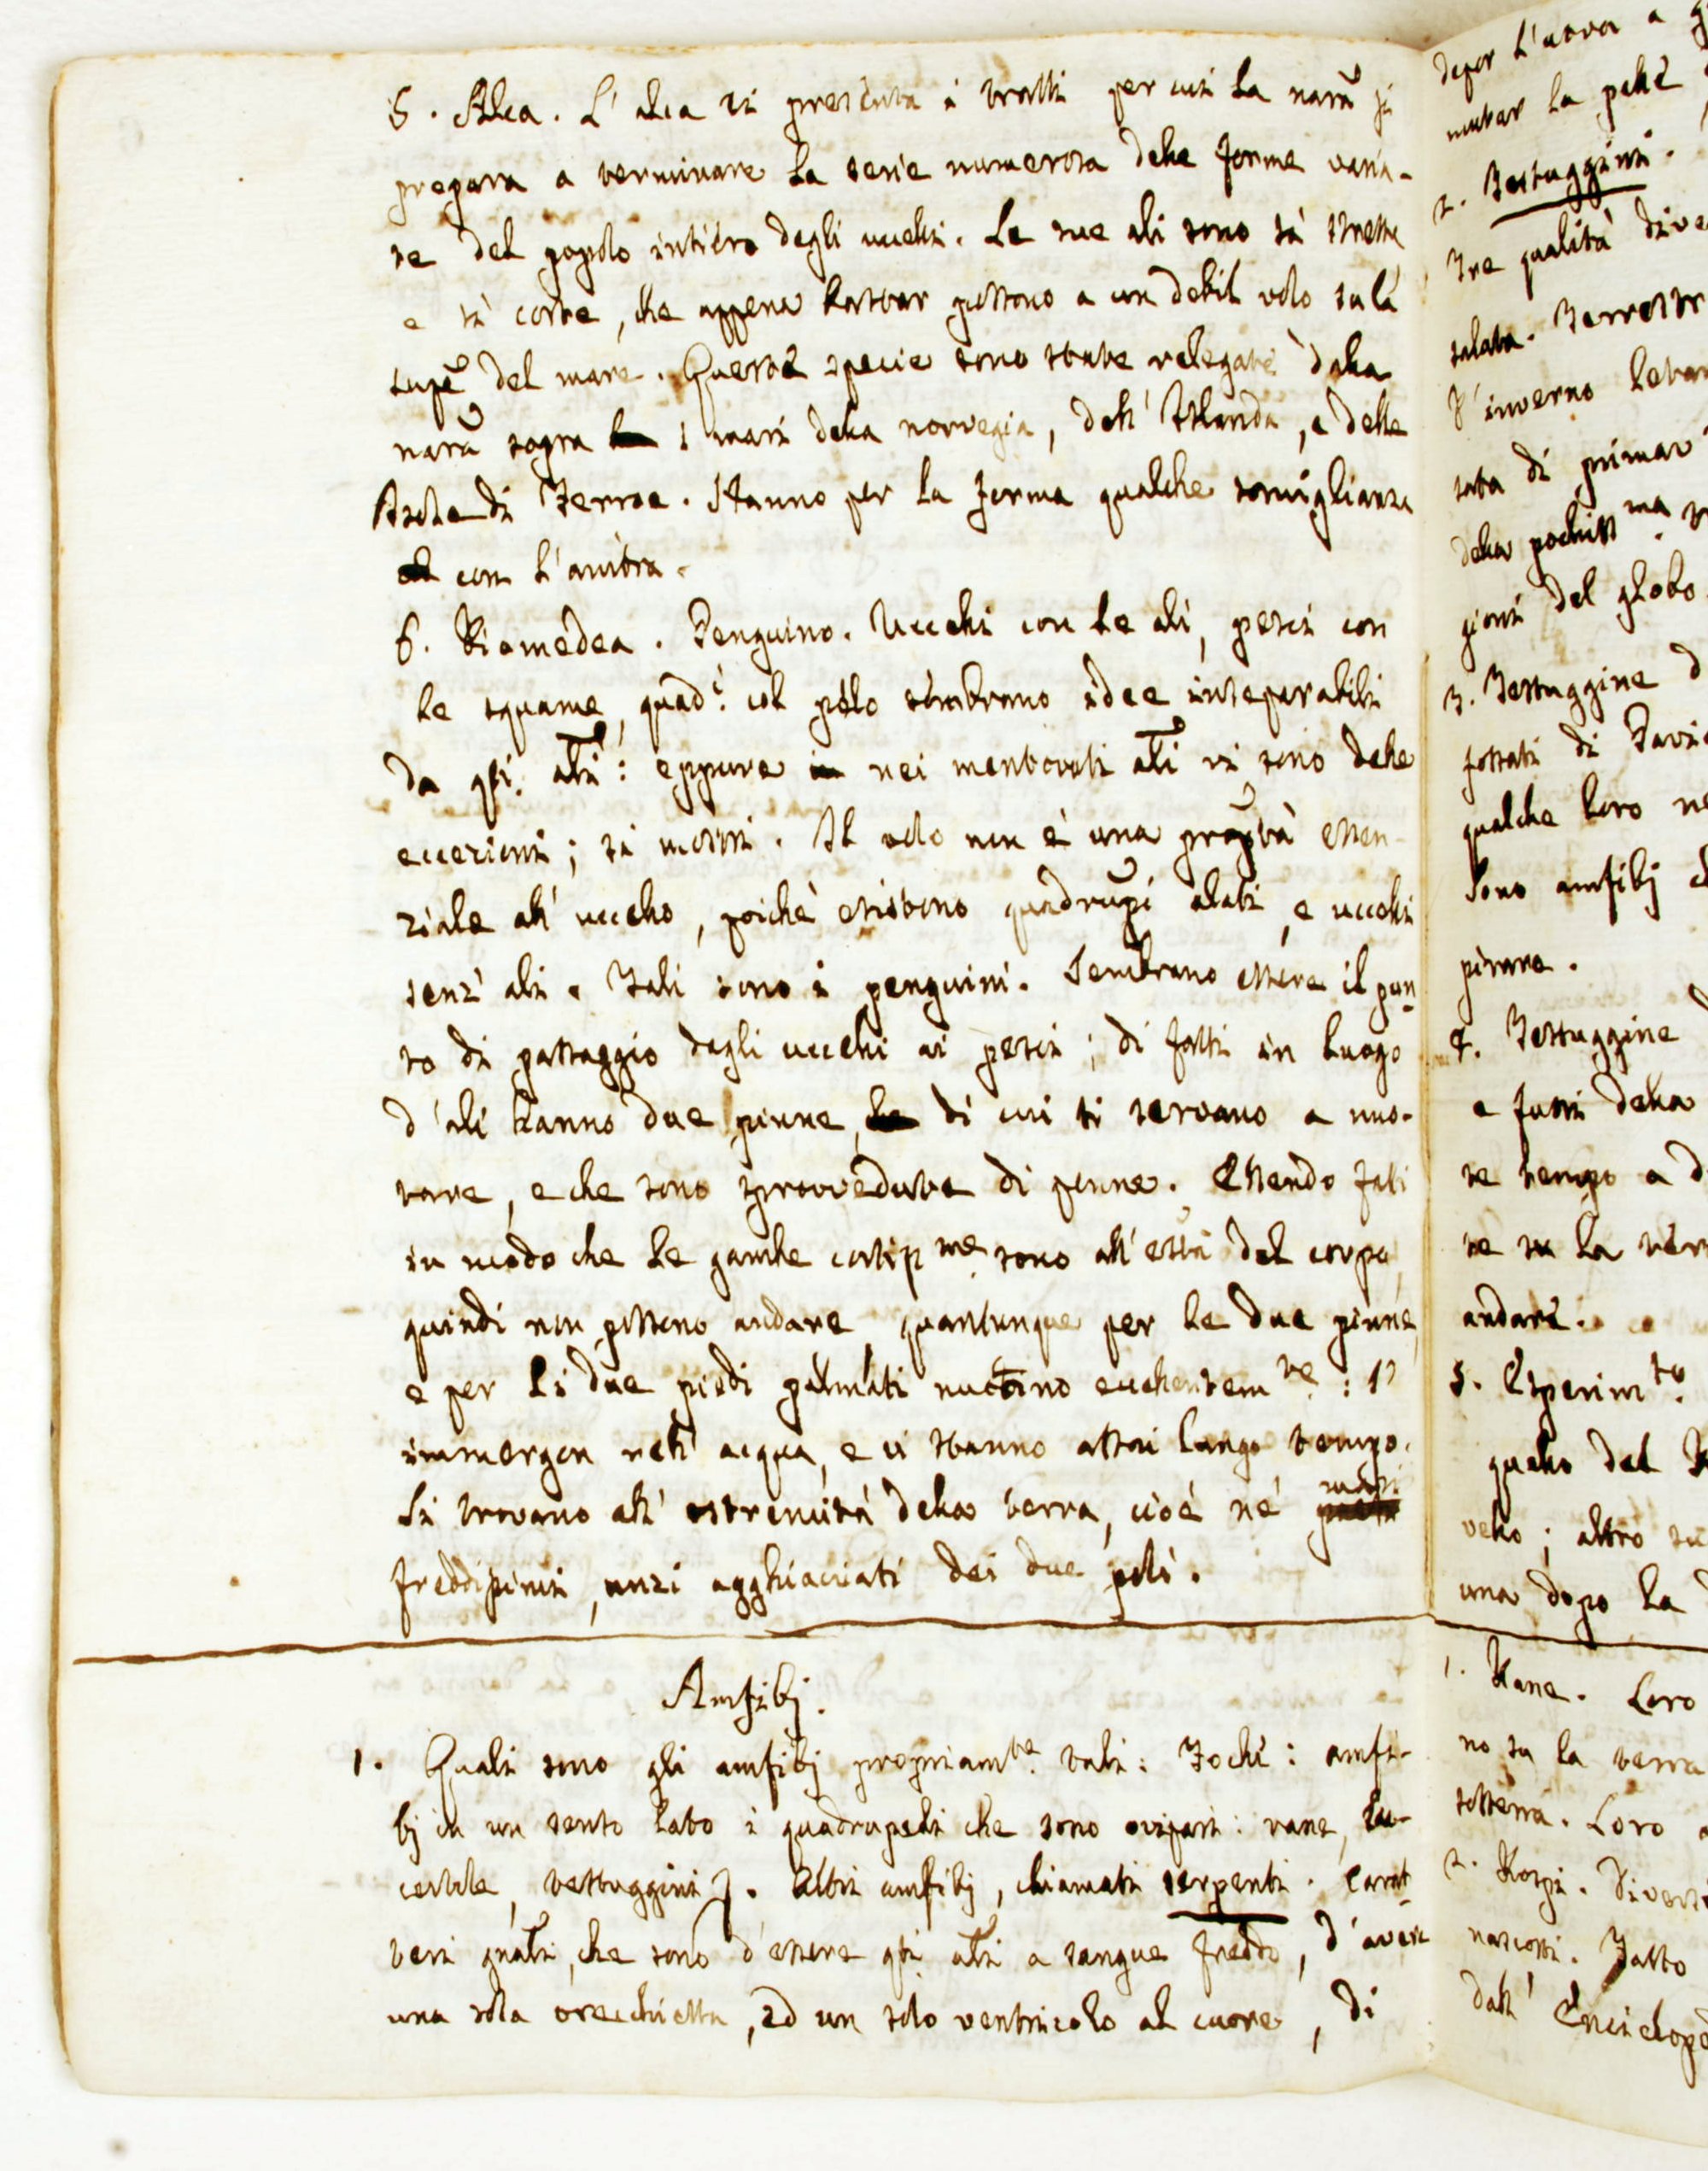 5. Alca. L'alca ci presenta i tratti per cui la narã si
prepara a terminare la serie numerosa delle forme varia-
te del popolo intiéro degli uccelli. Le sue ali sono sì strette
e sì corte, che appena bastar possono a un debil volo su la
supẽ del mare. Queste specie sono state relegate dalla
narã sopra i mari della norvegia, dell'Islanda, e delle
Isole di Ferroe. Hanno per la forma qualche somiglianza
con l'anitra.
6. Diomedea. Penguino. Uccelli con le ali, pesci con
le squame, quad.i col pélo sémbrano idee inseparabili
da qsti. alĩ: eppure nei mentovati alĩ vi sono delle
eccezioni; si mostri. Il volo non è una propr̃tà essen-
ziale all'uccello, poichè esistono quadrupĩ alati, e uccelli
senz'ali. Tali sono i penguini. Sembrano essere il pun
to di passaggio degli uccelli ai pesci; di fatti in luogo
d'ali hanno due pinne, di cui si servano a nuo-
tare, e che sono sprovvedute di penne. Essendo fatti
in modo che le gambe cortiss me. sono all'està del corpo,
quindi non possono andare, quantunque per le due pinne,
e per li due piedi palmati nuotino eccellentem te.: s'
immergon nell'acqua, e vi stanno assai lungo tempo.
Si trovano all'estremità della terra, cioé né mari
freddissimi, anzi agghiacciati dei due poli.
Amfibj.
1. Quali sono gli amfibj propriam te. tali: Fochi: amfi-
bj in un senso lato i quadrupedi che sono ovipari: rane, lu-
certole, testuggini ʃ. Altri amfibj, chiamati serpenti. Carat
teri gnãli, che sono d'essere qsti. alĩ a sangue freddo, d'avere
una sola orecchietta, ed un solo ventricolo al cuore, di
depor l'uova a
mutar la pelle
2. Testuggini.
Tre qualità dive
salata. Terrestr
L'inverno letar
sata di primav
della pochiss ma.
gioni del globo.
3. Testuggine d
fossati di Pavia
qualche loro ne
Sono amfibj
pirare.
4. Testuggine
e fussi della
te tempo a d
te su la terr
andare.
5. Esperim to.
quello del
vello; altro su
una dopo la
1. Rane. Loro
no su la terra
sotterra. Loro
2. Rospi. Diversi
nascosti. Fatto
dall'Encicloped